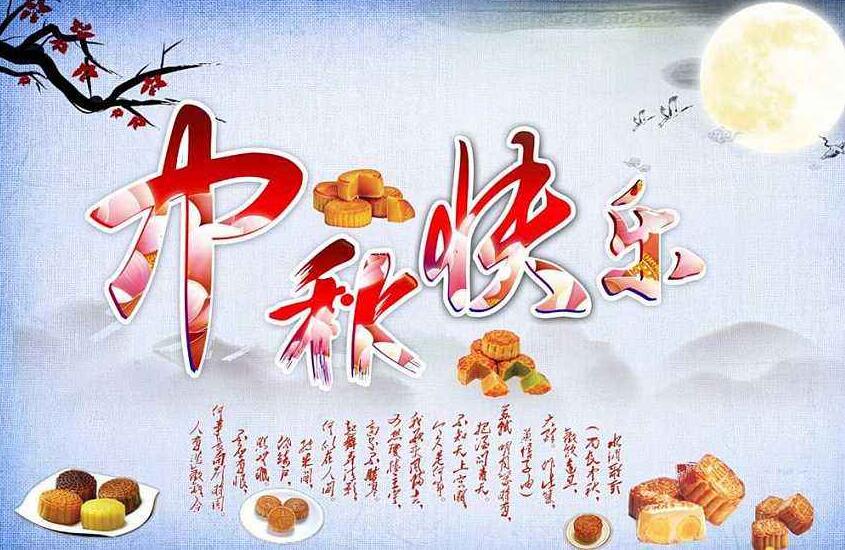 中秋快乐
水调歌头
(丙辰中秋,
欢饮达旦,
大醉,作此篇,
兼怀子由)
苏轼 明月几时有,
把酒问青天。
不知天上宫阙
今夕是何年。
我欲乘风归去
又恐琼楼玉宇,
高处不胜寒
起舞弄清影
何似在人间
转朱阁
低绮户,
照无眠
不应有恨,
何事长向别时圆
人有悲欢离合